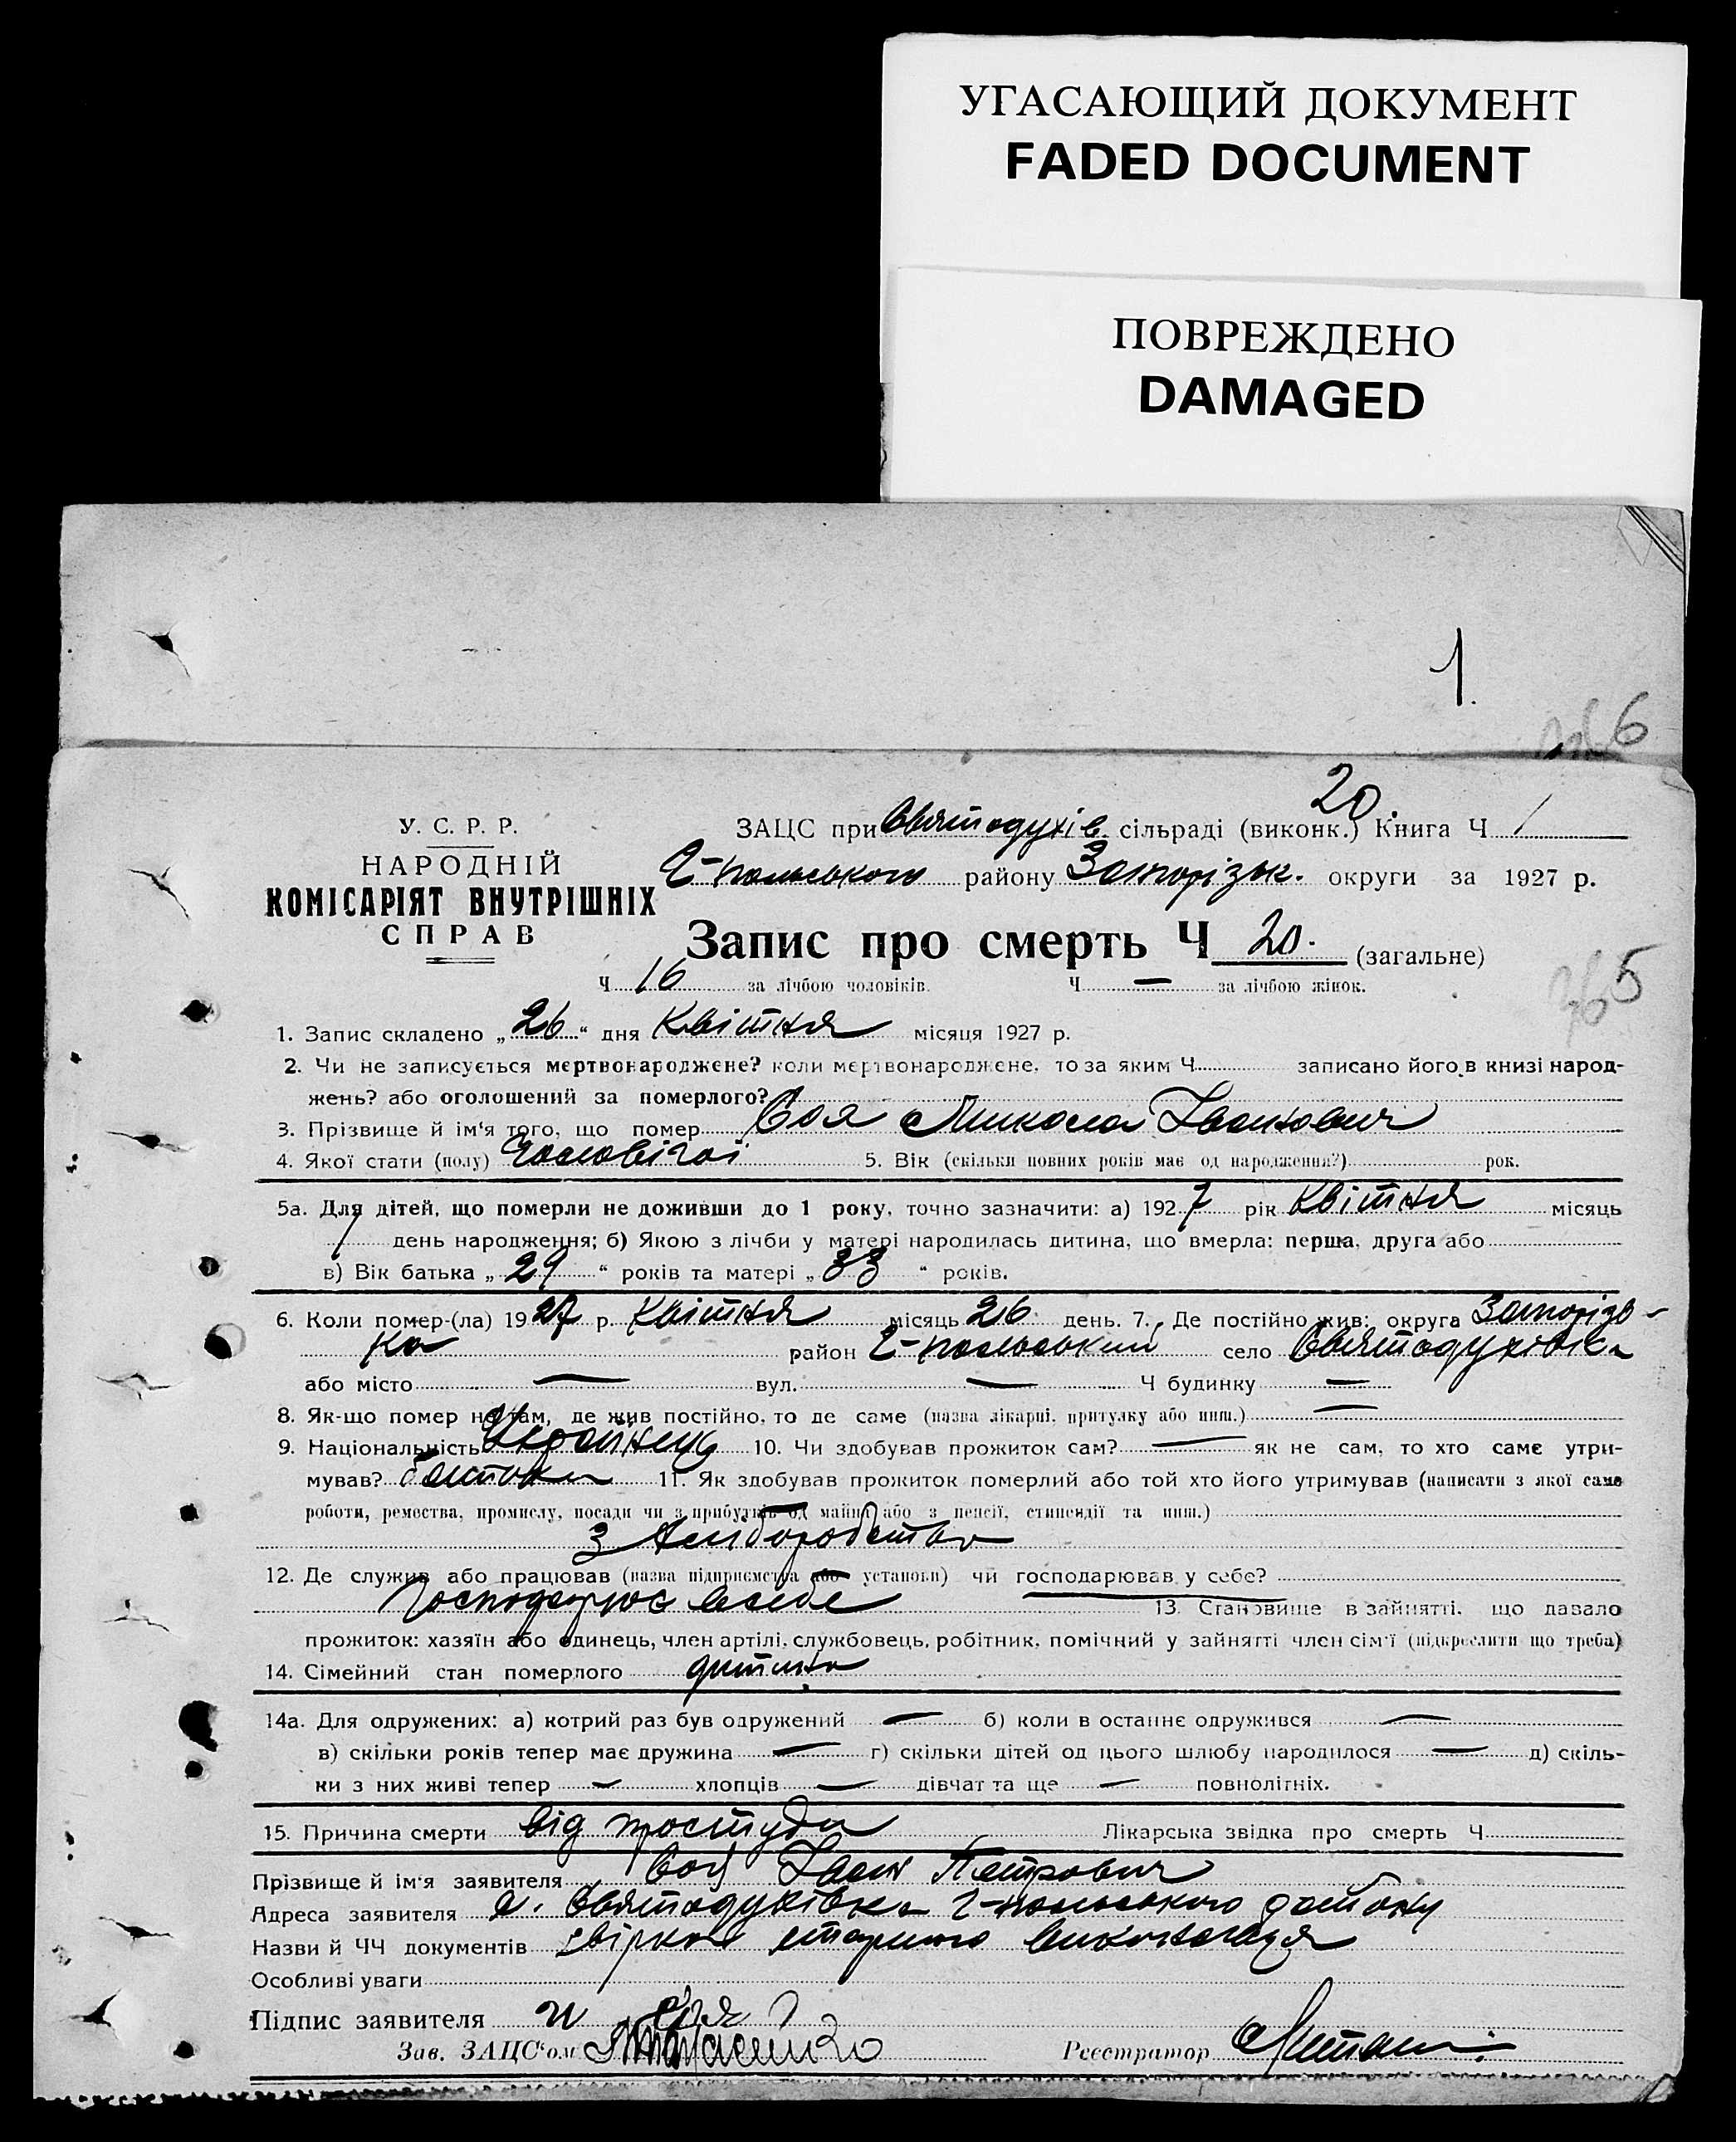 УГАСАЮЩИЙ ДОКУМЕНТ
FADED DOCUMENT
ПОВРЕЖДЕНО
DAMAGED
1.
6
20.
У. С. Р. Р.
НАРОДНІЙ
КОМІСАРІЯТ ВНУТРІШНІХ
СПРАВ
ЗАЦС при Святодухів. сільраді (виконк.) Книга Ч 1
Г-польського району Запорізьк. округи за 1927 р.
Запис про смерть Ч 20. (загальне)
365
Ч 16 за лічбою чоловіків. Ч — за лічбою жінок.
1. Запис складено „26“ дня Квітня місяця 1927 р.
2. Чи не записується мертвонароджене? коли мертвонароджене, то за яким Ч записано його в книзі народ-
жень? або оголошений за померлого?
3. Прізвище й ім'я того, що помер Соя Микола Іванович
4. Якої стати (полу) Чоловічої 5. Вік (скільки повних років має од народження?) рок.
5а. Для дітей, що померли не доживши до 1 року, точно зазначити: а) 1927 рік Квітня місяць
1 день народження; б) Якою з лічби у матері народилась дитина, що вмерла: перша, друга або
в) Вік батька „29“ років та матері „33“ років.
6. Коли помер-(ла) 1927 р. Квітня місяць 26 день. 7. Де постійно жив: округа Запорізь-
ка район Г-польський село Святодухівка
або місто — вул. — Ч будинку —
8. Як-що помер не там, де жив постійно, то де саме (назва лікарні, притулку або инш.) —
9. Національність Українец 10. Чи здобував прожиток сам? — як не сам, то хто саме утри-
мував? батьки 11. Як здобував прожиток померлий або той хто його утримував (написати з якої саме
роботи, ремества, промислу, посади чи з прибутків од майна або з пенсії, стипендії та инш.)
з хліборобства
12. Де служив або працював (назва підприємства або установи) чи господарював у себе?
Господарює в себе 13. Становище в зайнятті, що давало
прожиток: хазяїн або одинець, член артілі, службовець, робітник, помічний у зайнятті член сім'ї (підкреслити що треба)
14. Сімейний стан померлого дитина
14а. Для одружених: а) котрий раз був одружений — б) коли в останнє одружився —
в) скільки років тепер має дружина — г) скільки дітей од цього шлюбу народилося — д) скіль-
ки з них живі тепер — хлопців — дівчат та ще — повнолітніх.
15. Причина смерти від простуди Лікарська звідка про смерть Ч
Прізвище й ім'я заявителя Соя Іван Петрович
Адреса заявителя с. Святодухівка Г-польського району
Назви й ЧЧ документів
Особливі уваги
Підпис заявителя
Зав. ЗАЦС'ом Реєстратор